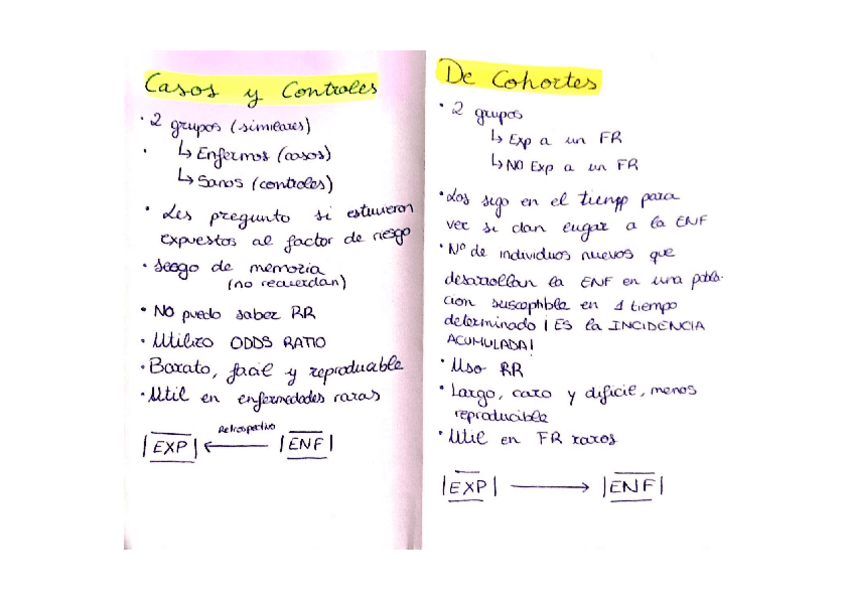 Casos y Controles
· 2 grupos (similares)
· ↳ Enfermos (casos)
↳ Sanos (controles)
· Les pregunto si estuvieron
expuestos al factor de riesgo
· Sesgo de memoria
(no recuerdan)
· NO puedo saber RR
· Utilizo ODDS RATIO
· Barato, facil y reproducible
· Util en enfermedades raras
Retrospectivo
|EXP| ← |ENF|
De Cohortes
· 2 grupos
↳ Exp a un FR
↳ NO Exp a un FR
· Los sigo en el tiempo para
ver si dan lugar a la ENF
· Nº de individuos nuevos que
desarrollan la ENF en una pobla-
cion susceptible en 1 tiempo
determinado ¡ES la INCIDENCIA
ACUMULADA!
· Uso RR
· Largo, caro y dificil, menos
reproducible
· Util en FR raros
|EXP| → |ENF|